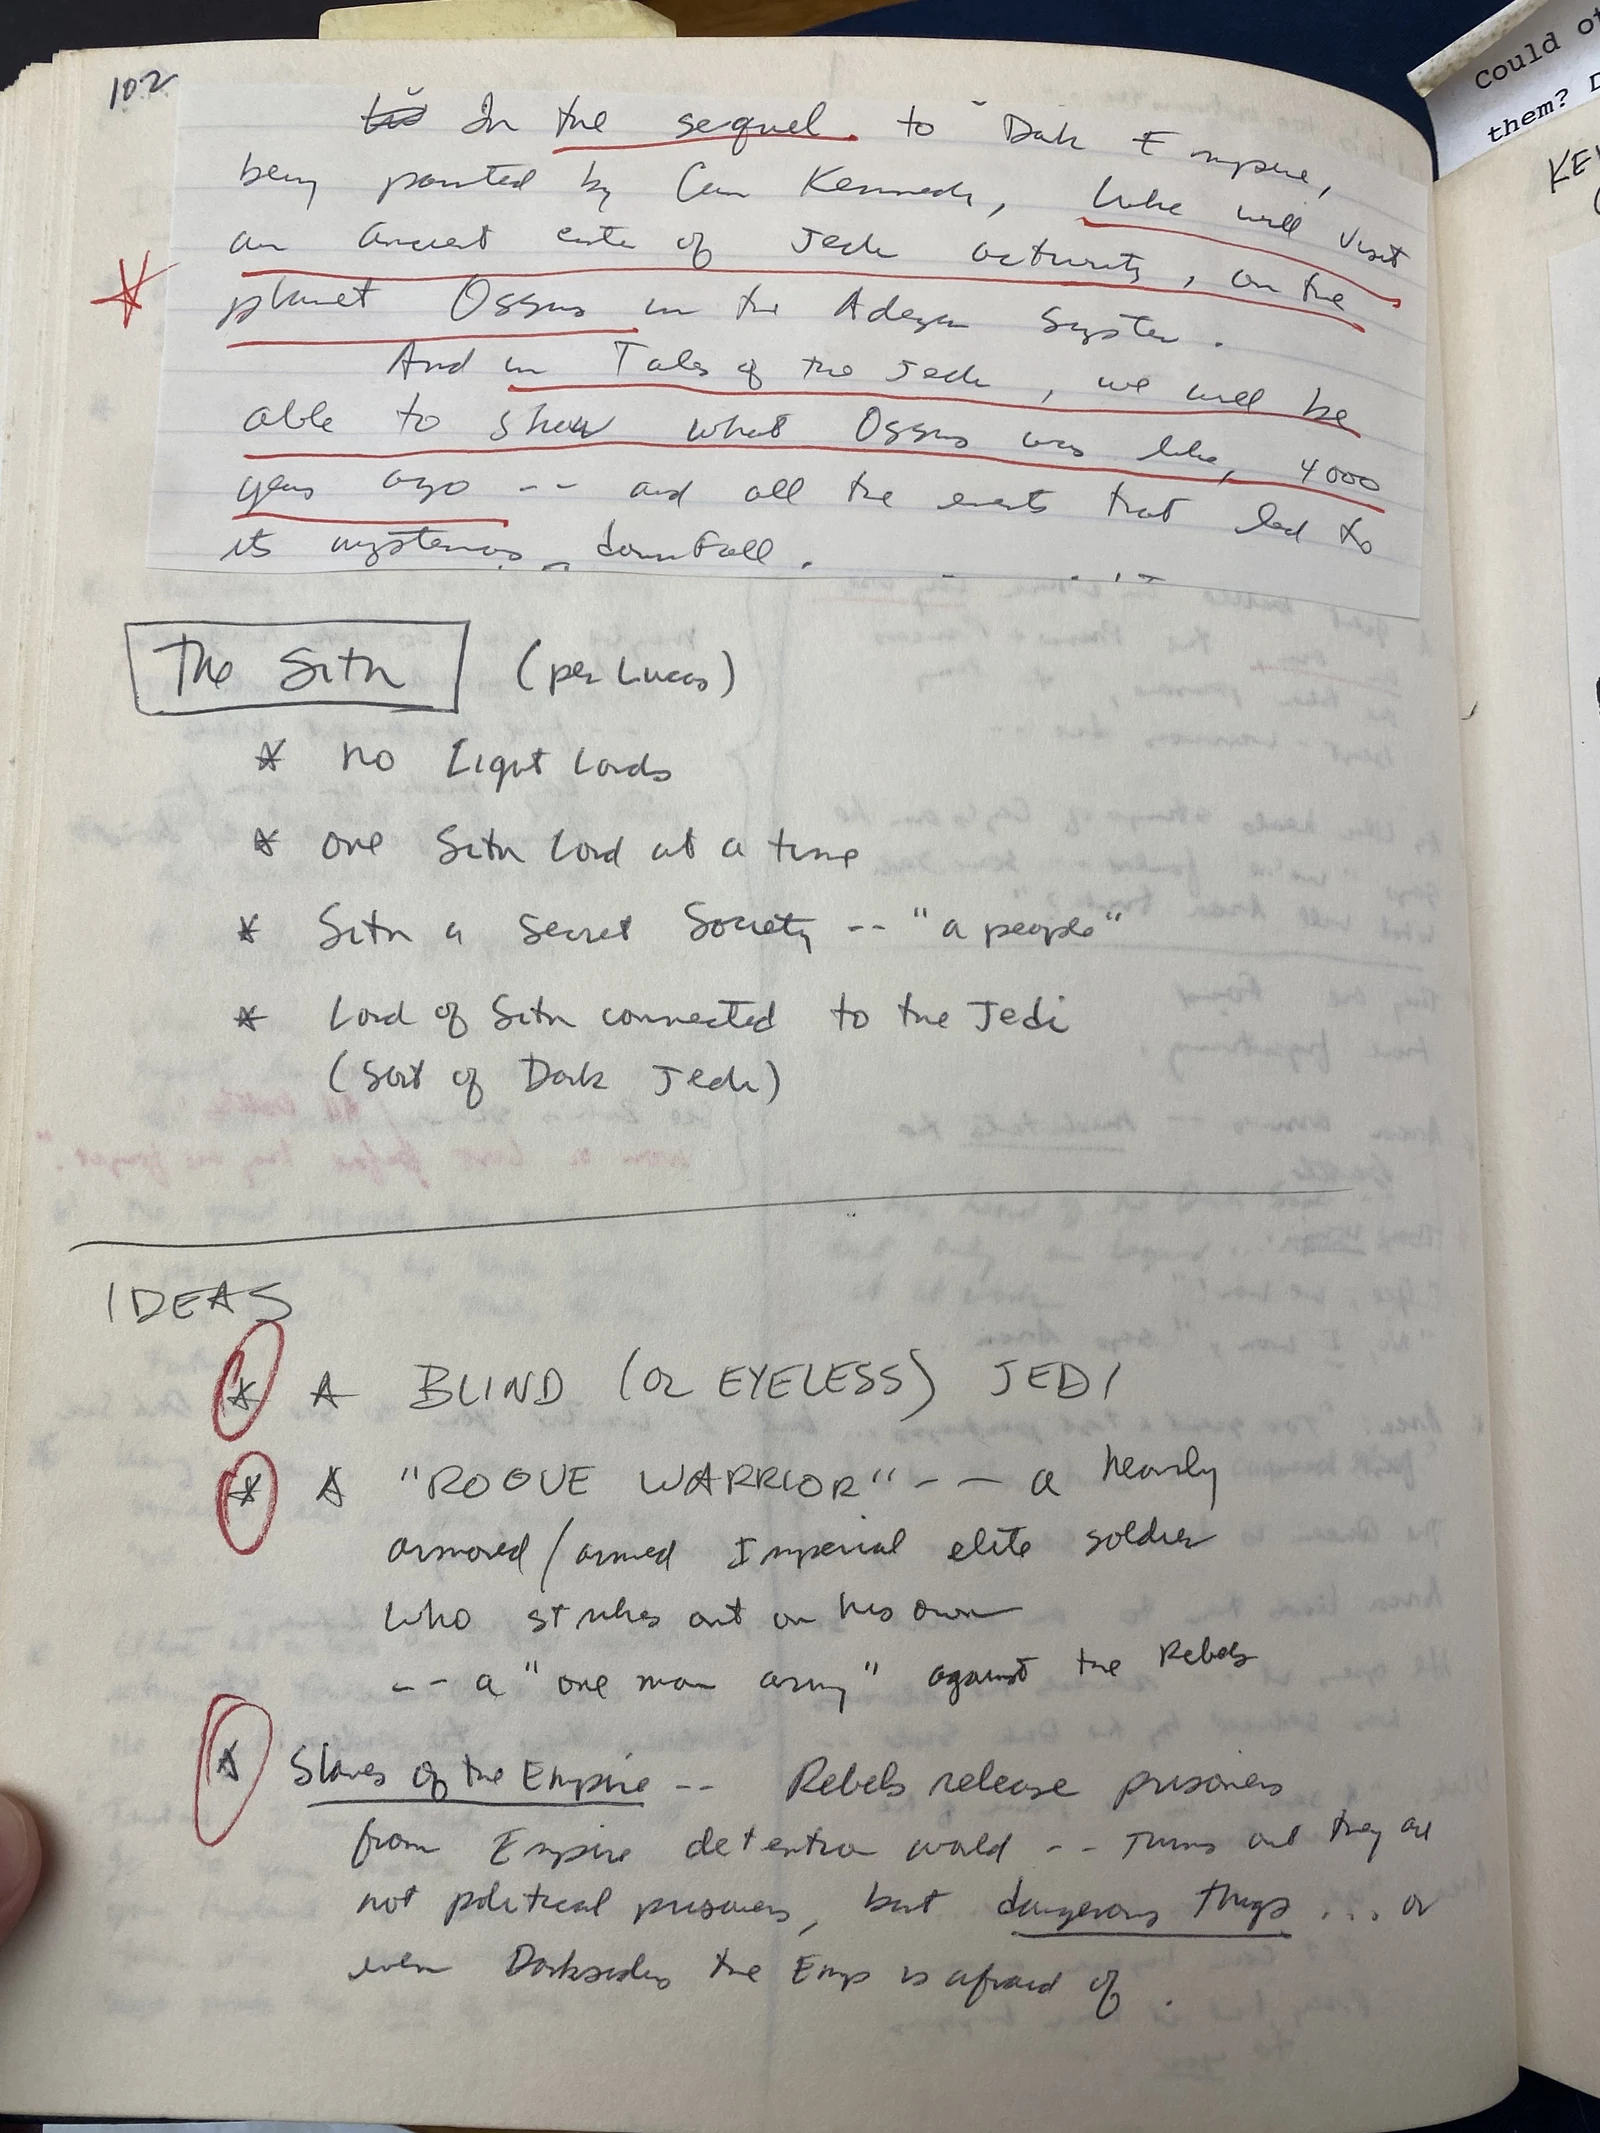 102
In the sequel to "Dark Empire,
being painted by Cam Kennedy, Luke will visit
an ancient center of Jedi activity, on the
planet Ossus in the Adegan System.
And in Tales of the Jedi, we will be
able to show what Ossus was like, 4000
years ago -- and all the events that led to
its mysterious downfall.
The Sith (per Lucas)
* no Light Lords
* one Sith Lord at a time
* Sith a Secret Society -- "a people"
* Lord of Sith connected to the Jedi
(sort of Dark Jedi)
IDEAS
* A BLIND (or EYELESS) JEDI
* A "ROGUE WARRIOR" -- a heavily
armored/armed Imperial elite soldier
who strikes out on his own
-- a "one man army" against the Rebels
* Slaves of the Empire -- Rebels release prisoners
from Empire detention world -- Turns out they are
not political prisoners, but dangerous things ... or
even Darksiders the Emp is afraid of.
Could
them?